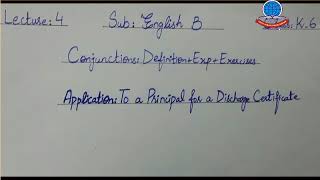 Lecture: 4 Sub: English B K.6
Conjunctions: Definition+Exp+Exercises
Application: To a Principal for a Discharge Certificate